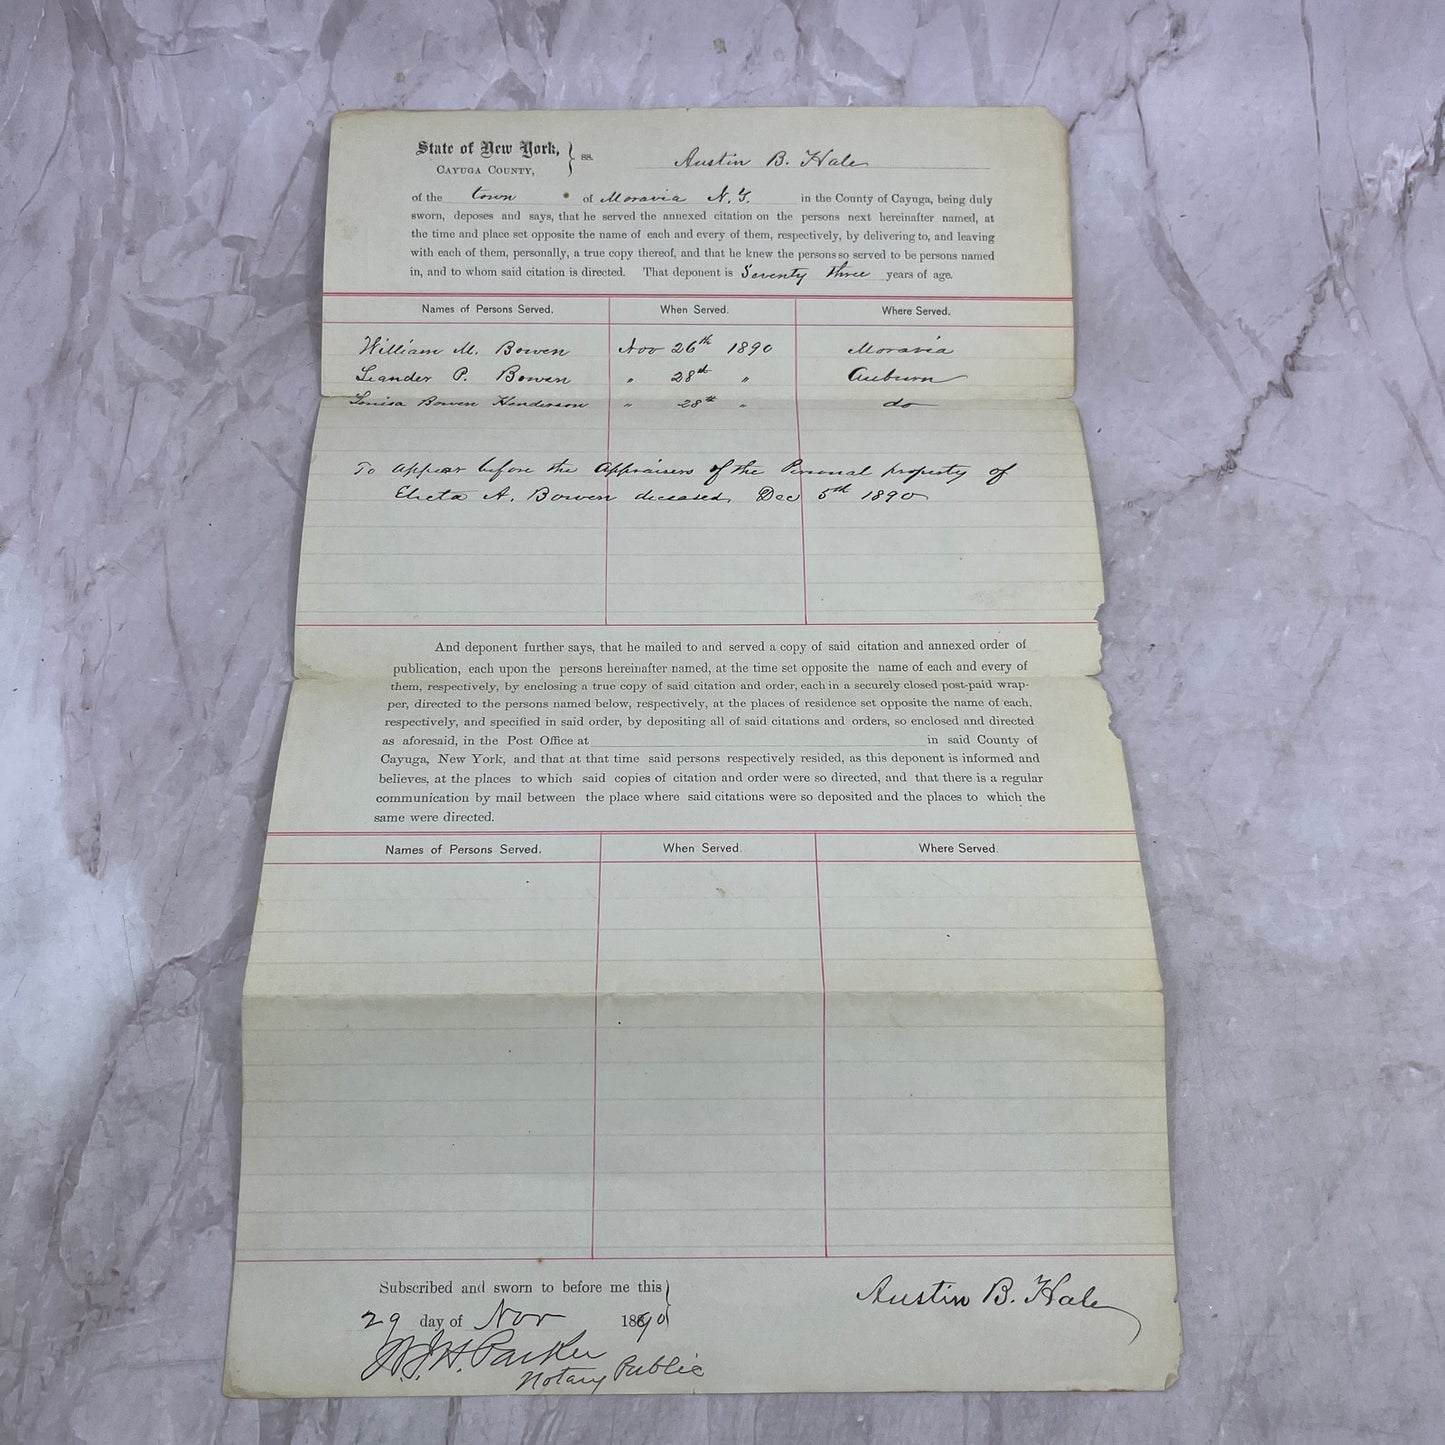 State of New York, } ss. Austin B. Hale
CAYUGA COUNTY,
of the town of Moravia N. Y. in the County of Cayuga, being duly
sworn, deposes and says, that he served the annexed citation on the persons next hereinafter named, at
the time and place set opposite the name of each and every of them, respectively, by delivering to, and leaving
with each of them, personally, a true copy thereof, and that he knew the persons so served to be persons named
in, and to whom said citation is directed. That deponent is Seventy three years of age.
Names of Persons Served. When Served. Where Served.
William M. Bowen Nov 26th 1890 Moravia
Leander P. Bowen " 28th " Auburn
Louisa Bowen Henderson " 28th " do
To appear before the Appraisers of the Personal property of
Electa A. Bowen deceased, Dec 5th 1890
And deponent further says, that he mailed to and served a copy of said citation and annexed order of
publication, each upon the persons hereinafter named, at the time set opposite the name of each and every of
them, respectively, by enclosing a true copy of said citation and order, each in a securely closed post-paid wrap-
per, directed to the persons named below, respectively, at the places of residence set opposite the name of each,
respectively, and specified in said order, by depositing all of said citations and orders, so enclosed and directed
as aforesaid, in the Post Office at in said County of
Cayuga, New York, and that at that time said persons respectively resided, as this deponent is informed and
believes, at the places to which said copies of citation and order were so directed, and that there is a regular
communication by mail between the place where said citations were so deposited and the places to which the
same were directed.
Names of Persons Served. When Served. Where Served.
Subscribed and sworn to before me this } Austin B. Hale
29 day of Nov 1890
H. Parker
Notary Public